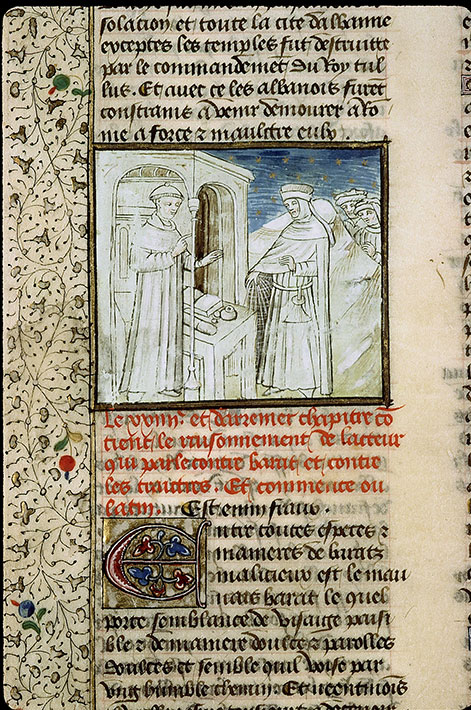 solacion et toute la cite dalbanne
exceptes les temples fut destruitte
par le commandemēt du Roy tul
lus. Et auec ce les albanois furēt
constrains a venir demourer a Ro
me a force ⁊ maulgre eulx
Le xviiiᵉ et darremer chapitre cō
tient le raisonnement de lacteur
qui parle contre barat et contre
les tricttres. Et commence ou
latin. Est enim fraus.
Entre toutes especes ⁊
manieres de baratz
malicieux est le mau
uais barat le quel
porte semblance de visaige paisi
ble ⁊ de maniere doulce ⁊ parolles
doulces et semble quil voise par
vng humble chemin. Et neantmoīs